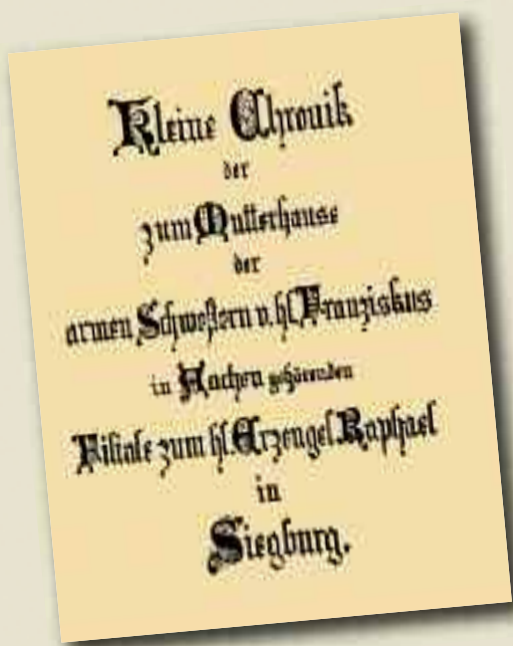 Kleine Chronik
der
zum Mutterhause
der
armen Schwestern v. hl. Franziskus
in Aachen gehörenden
Filiale zum hl. Erzengel Raphael
in
Siegburg.